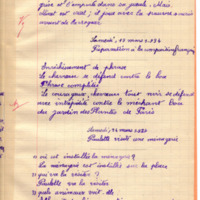 gère et l'emporte dans sa gueule. Mais
Minet est rusé, il
avant de la croquer
Samedi, 17 mars 1934
Préparation à la composition française
Enrichissement de phrase
Le chameau se défend contre le lion
Phrase complétée
Le courageux chameau tout noir se défend
avec intrépidité contre le méchant lion
des Jardins des Plantes de Paris
Samedi, 24 mars 1934
Paulette visite une ménagerie
a) où est installée la ménagerie ?
La ménagerie est installée sur la place
b) qui va la visiter
Paulette va la visiter
c) quels animaux voit-elle